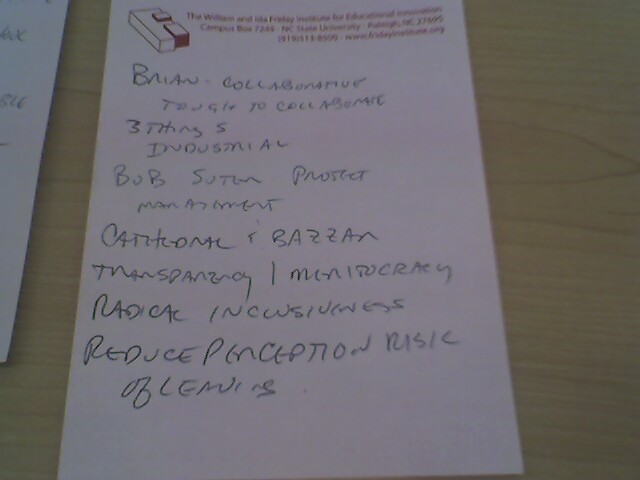 The William and Ida Friday Institute for Educational Innovation
Campus Box 7249 · NC State University · Raleigh, NC 27695
(919)513-8500 · www.fridayinstitute.org
BRIAN - COLLABORATIVE
TOUGH TO COLLABORATE
3 THINGS
INDUSTRIAL
BOB SUTOR PROJECT
MANAGEMENT
CATHEDRAL & BAZZAR
TRANSPARENCY / MERITOCRACY
RADICAL INCLUSIVENESS
REDUCE PERCEPTION RISK
OF LEAVING